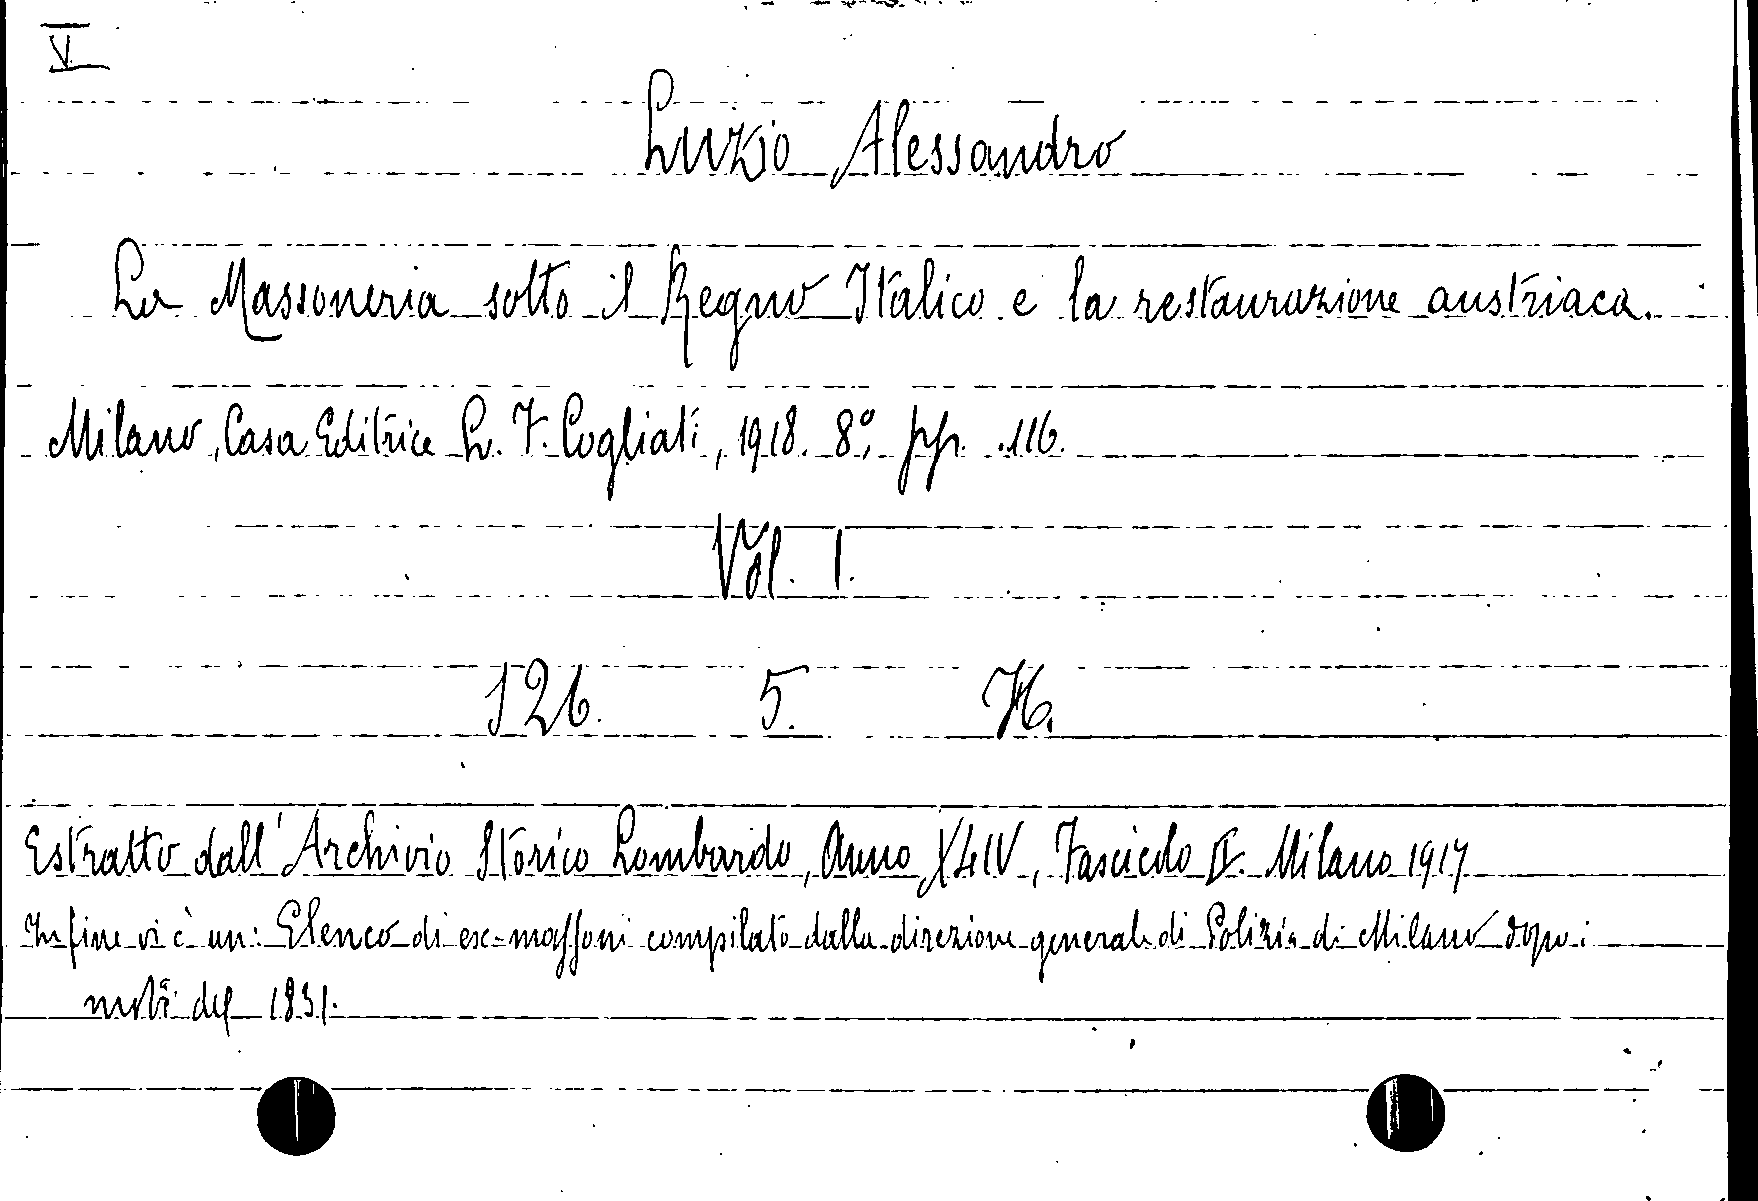 V.
Luzio Alessandro
La Massoneria sotto il Regno Italico e la restaurazione austriaca.
Milano, Casa Editrice L. F. Cogliati, 1918. 8°, pp. 116.
Vol. 1.
126. 5. H.
Estratto dall'Archivio Storico Lombardo, Anno XLIV, Fascicolo IV. Milano 1917
In fine vi è un: Elenco di ex-massoni compilato dalla direzione generale di Polizia di Milano dopo i
moti del 1831.